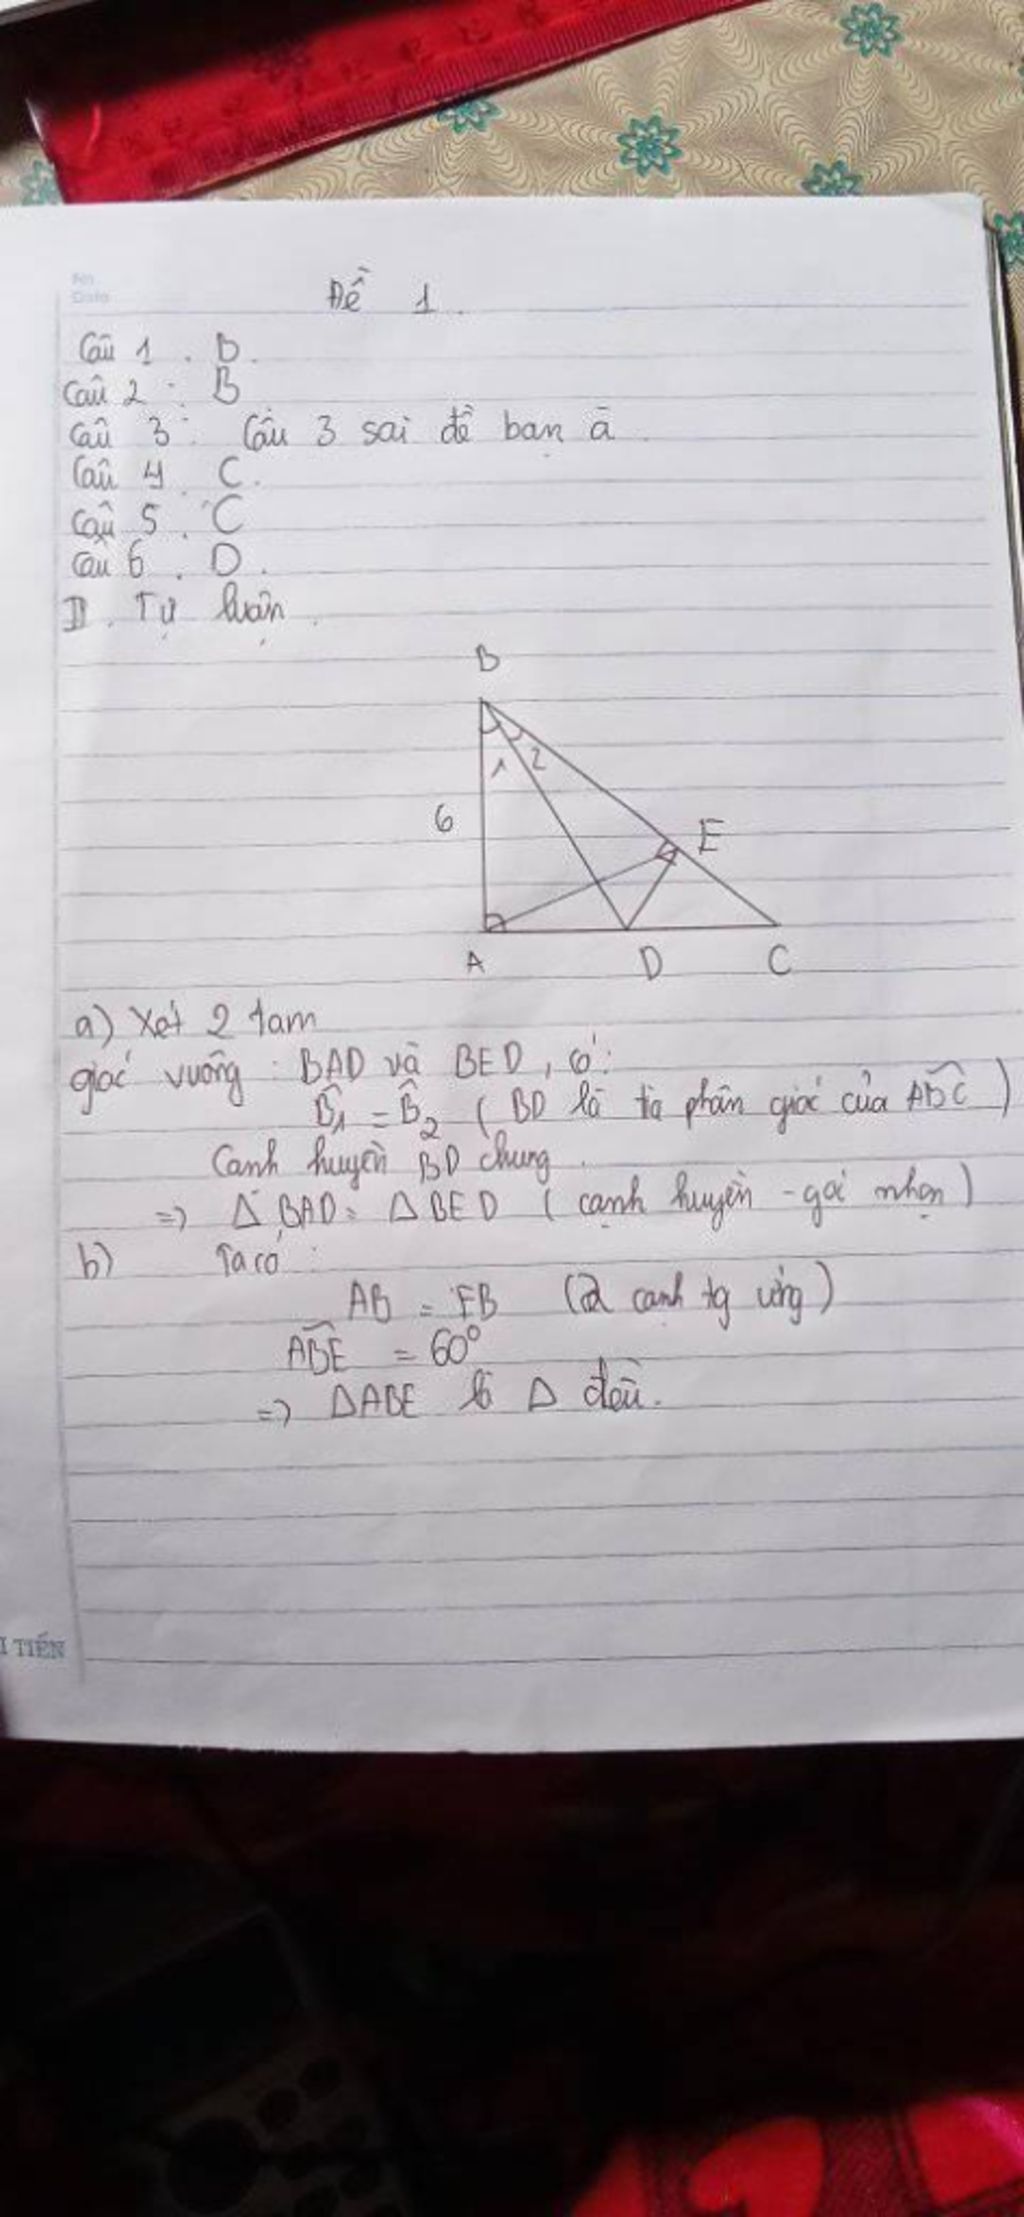 No.
Date
Đề 1.
Câu 1. D.
Câu 2: B
Câu 3: Câu 3 sai đề bạn ạ.
Câu 4. C.
Câu 5. C
Câu 6. D.
II. Tự luận.
B
1 2
6
E
A D C
a) Xét 2 tam
giác vuông: BAD và BED, có:
B̂1 = B̂2 (BD là tia phân giác của ABC)
Cạnh huyền BD chung.
=> Δ BAD = Δ BED (cạnh huyền - góc nhọn)
b) Ta có:
AB = EB (2 cạnh tg ứng)
ABE = 60°
=> ΔABE là Δ đều.
I TIẾN